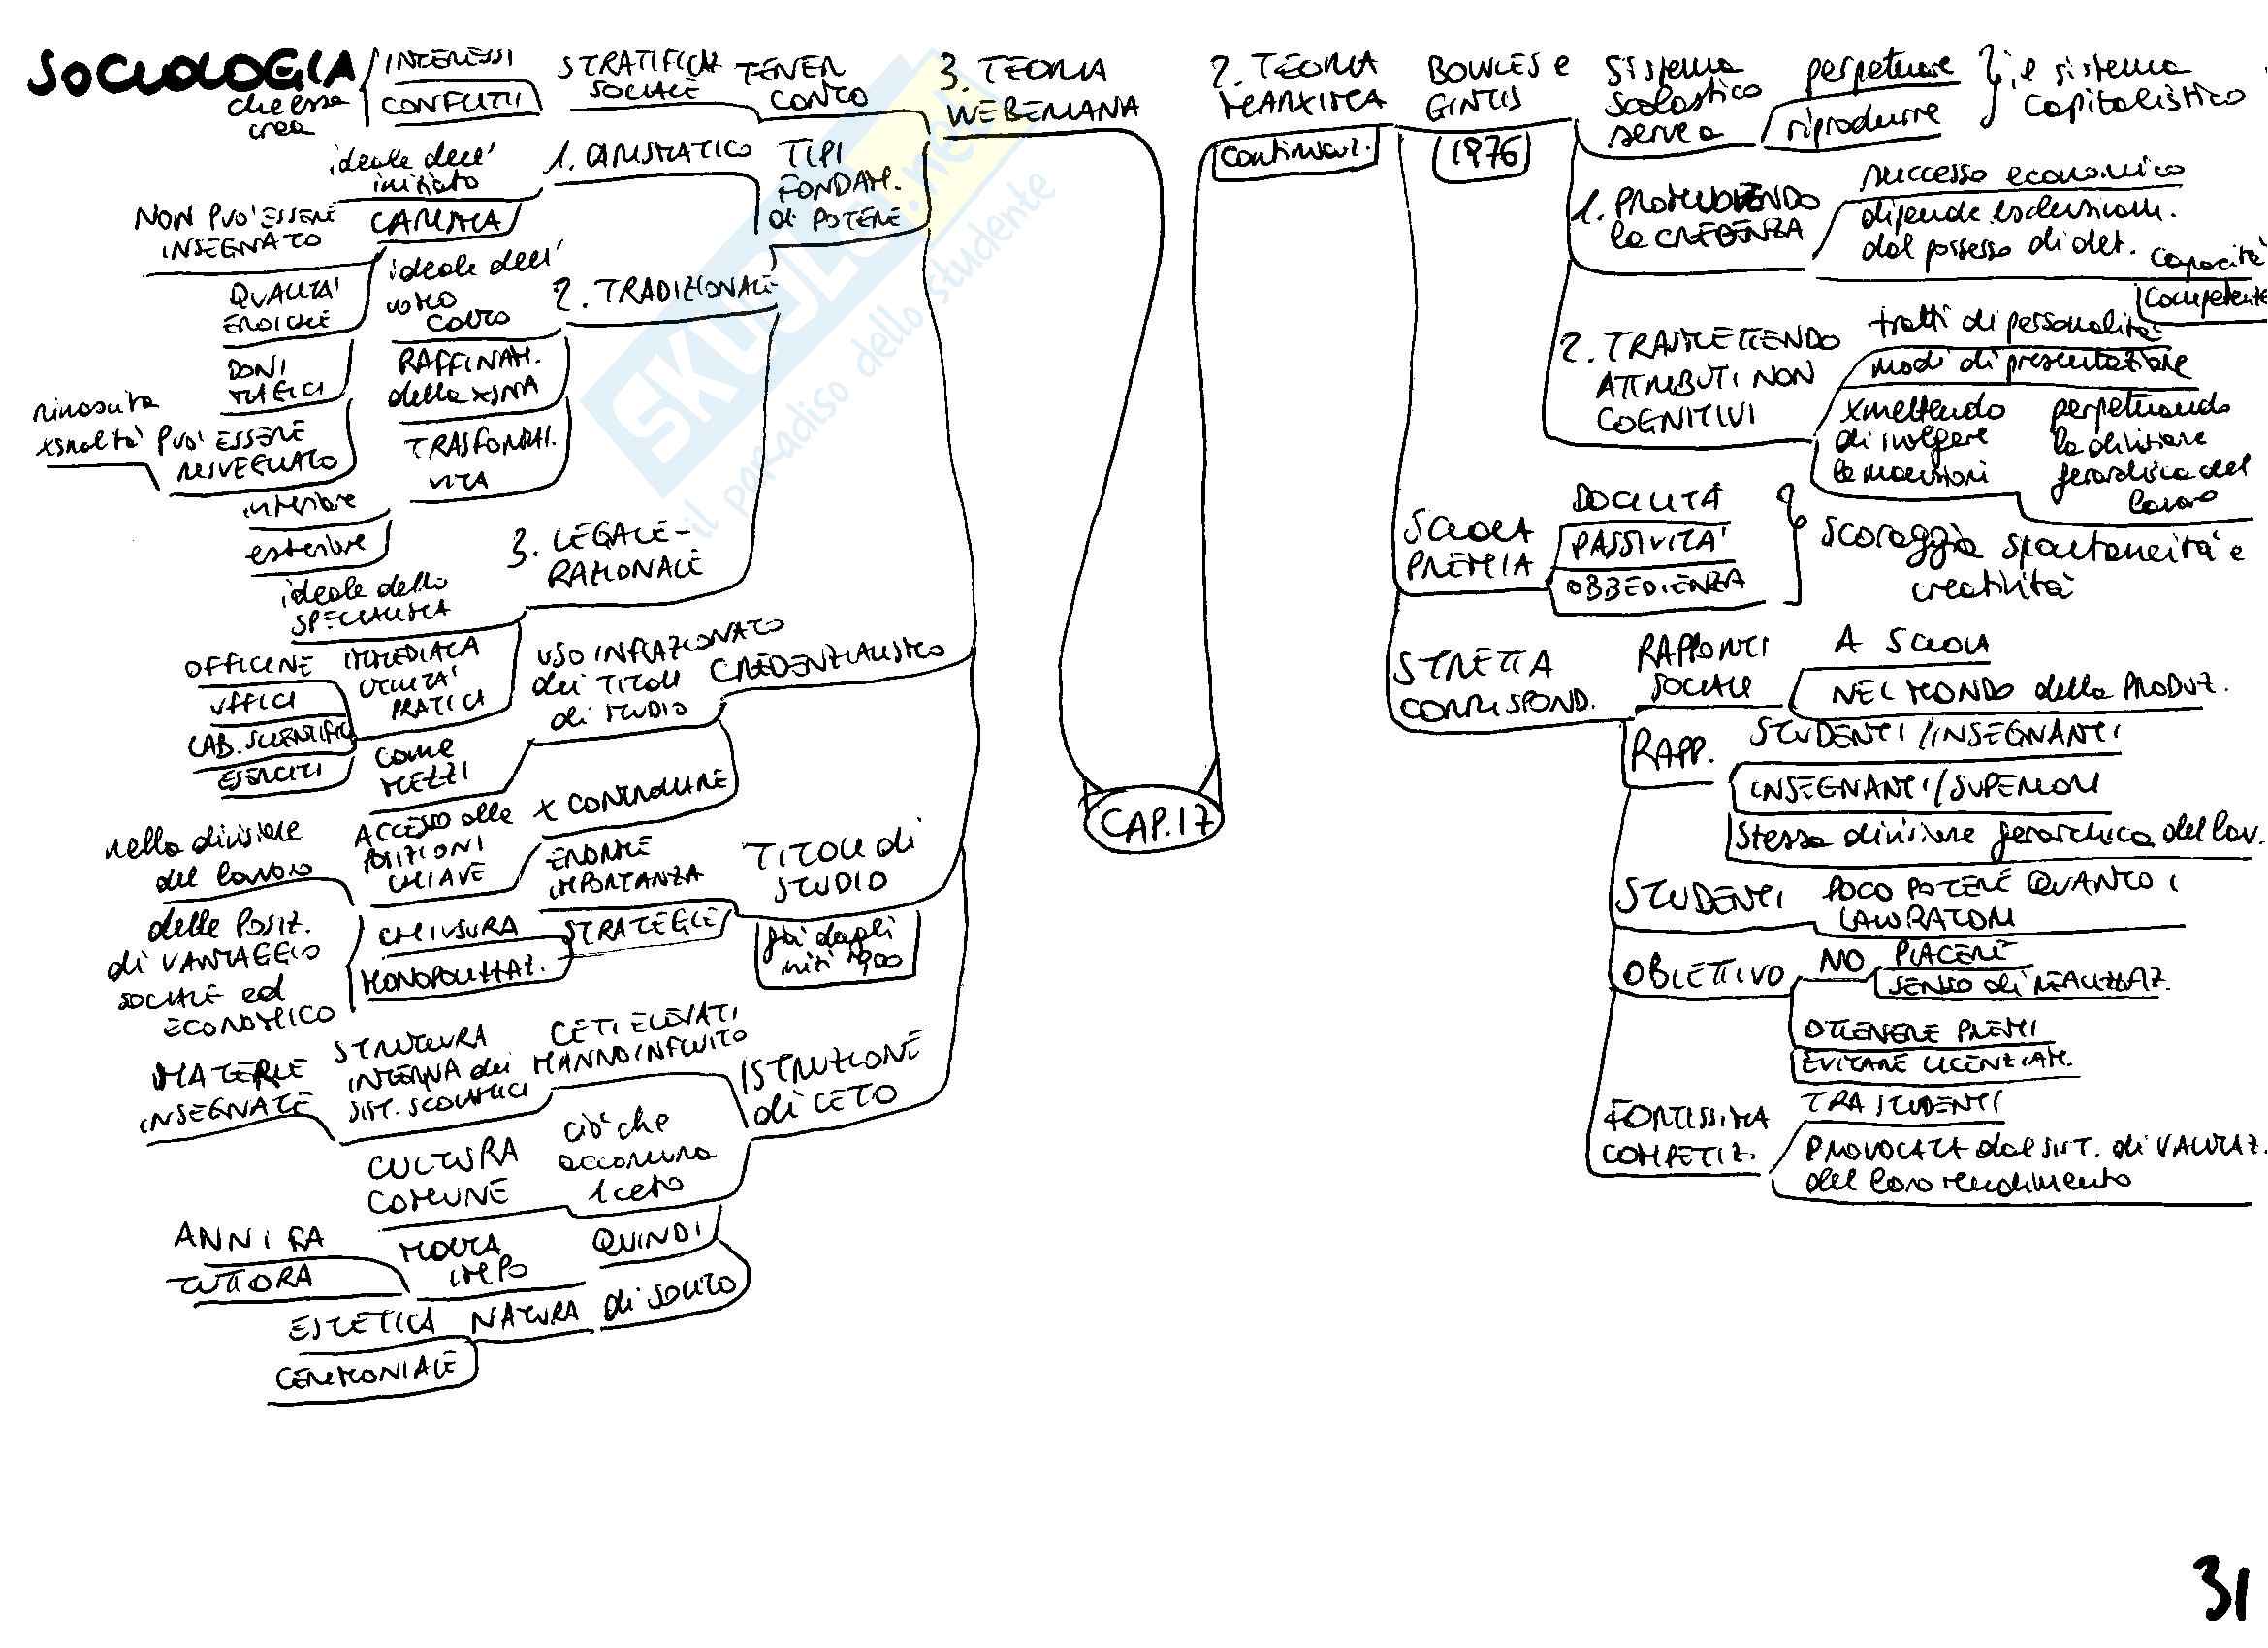 SOCIOLOGIA
che essa
crea
INTERESSI
CONFLITTI
STRATIFICAZ
SOCIALE
TENER
CONTO
3. TEORIA
WEBERIANA
ideale dell'
iniziato
1. CARISMATICO
TIPI
FONDAM.
di POTERE
NON PUO' ESSERE
INSEGNATO
CARISMA
QUALITA'
EROICHE
DONI
MAGICI
rinascita
xsnalità
PUO' ESSERE
RISVEGLIATO
ideale dell'
uomo
colto
2. TRADIZIONALE
RAFFINAM.
della xsna
TRASFORMAZ.
VITA
interiore
esteriore
3. LEGALE-
RAZIONALE
ideale dello
SPECIALISTA
OFFICINE
UFFICI
LAB. SCIENTIFICI
ESERCITI
IMMEDIATA
UTILITA'
PRATICA
USO INFLAZIONATO
dei TITOLI
di STUDIO
CREDENZIALISMO
come
MEZZI
X CONTROLLARE
nella divisione
del lavoro
ACCESSO alle
POSIZIONI
CHIAVE
ENORME
IMPORTANZA
TITOLI di
STUDIO
già dagli
inizi '900
STRATEGIE
CHIUSURA
MONOPOLIZZAZ.
delle POSIZ.
di VANTAGGIO
SOCIALE ed
ECONOMICO
MATERIE
INSEGNATE
STRUTTURA
INTERNA dei
SIST. SCOLASTICI
CETI ELEVATI
HANNO INFLUITO
ISTRUZIONE
di CETO
CULTURA
COMUNE
ciò che
accomuna
1 ceto
ANNI FA
TUTTORA
MOLTA
IMPO
QUINDI
ESTETICA
CERIMONIALE
NATURA
di SOLITO
CAP. 17
2. TEORIA
MARXISTA
continuaz.
BOWLES e
GINTIS
1976
Sistema
scolastico
serve a
perpetuare
riprodurre
il sistema
capitalistico
1. PROMUOVENDO
la CREDENZA
successo economico
dipende esclusivam.
dal possesso di det.
capacità
competenze
2. TRASMETTENDO
ATTRIBUTI NON
COGNITIVI
tratti di personalità
modi di presentazione
xmettendo
di svolgere
le mansioni
perpetuando
la divisione
gerarchica del
lavoro
SCUOLA
PREMIA
DOCILITÀ
PASSIVITA'
OBBEDIENZA
Scoraggia spontaneità e
creatività
STRETTA
CORRISPOND.
RAPPORTI
SOCIALI
A SCUOLA
NEL MONDO della PRODUZ.
RAPP.
STUDENTI/INSEGNANTI
INSEGNANTI/SUPERIORI
Stessa divisione gerarchica del lav.
STUDENTI
POCO POTERE QUANTO i
LAVORATORI
OBIETTIVO
NO
PIACERE
SENSO di REALIZZAZ.
OTTENERE PREMI
EVITARE LICENZIAM.
FORTISSIMA
COMPETIZ.
TRA STUDENTI
PROVOCATA dal SIST. di VALUTAZ.
del loro rendimento
SKUOLA.net
il paradiso dello studente
31